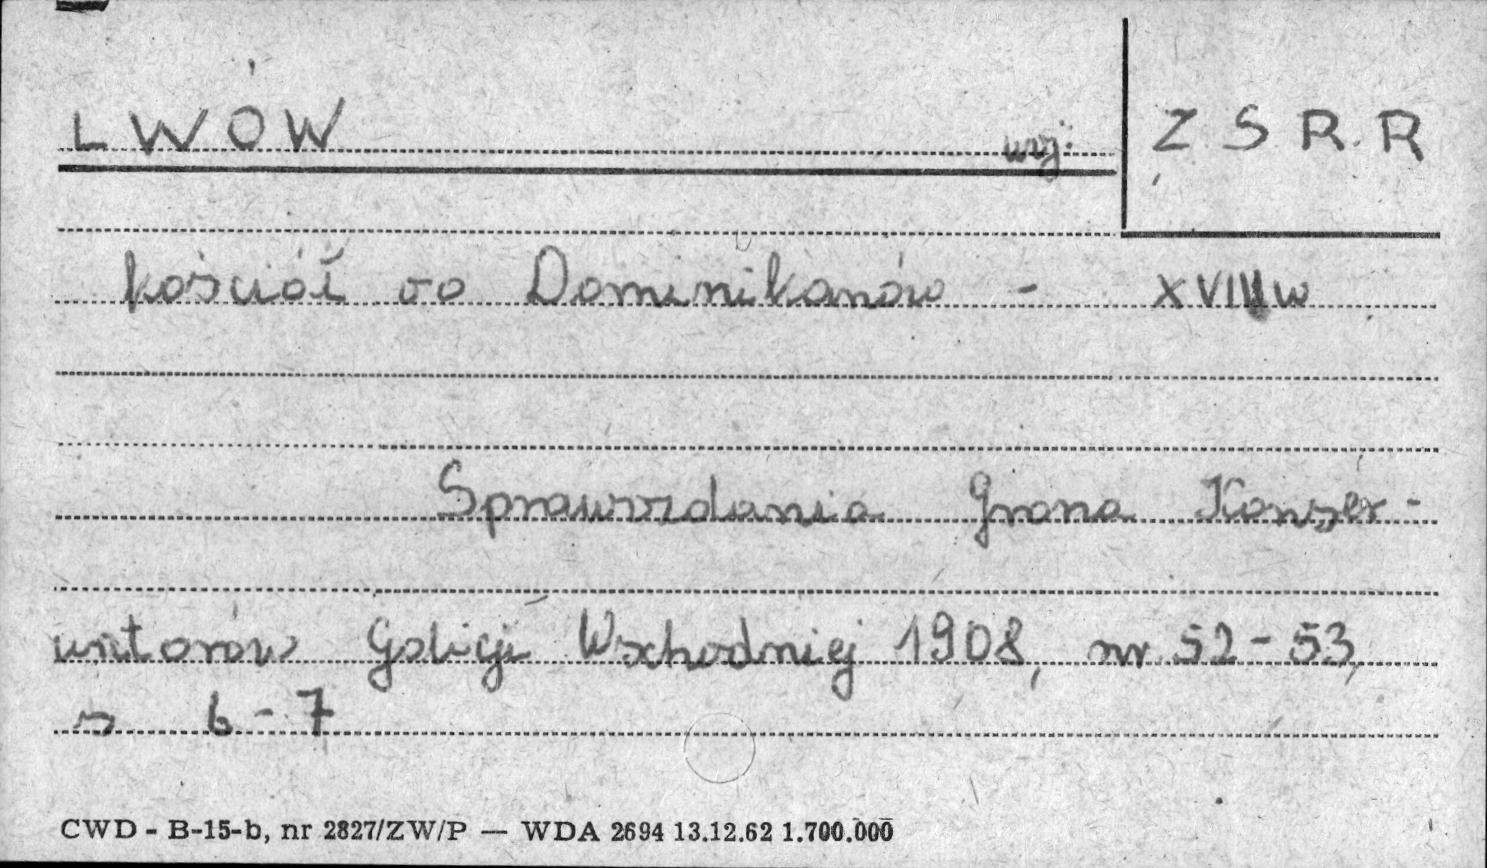 LWÓW woj. ZSRR
kościół oo Dominikanów - XVIII w
Sprawozdania Grona Konser-
watorów Galicji Wschodniej 1908, nr 52-53,
s 6-7
CWD - B-15-b, nr 2827/ZW/P — WDA 2694 13.12.62 1.700.000